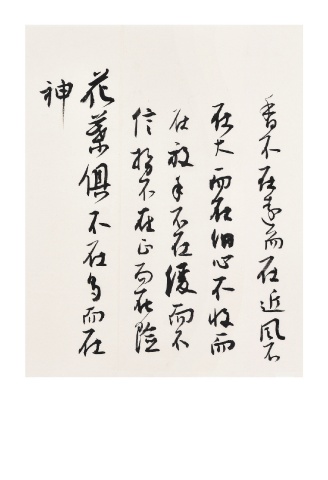 香不在遠而在近風不
在大而在細心不收而
在放手不在緩而不
信不在正而在險
花葉俱不在多而在
神